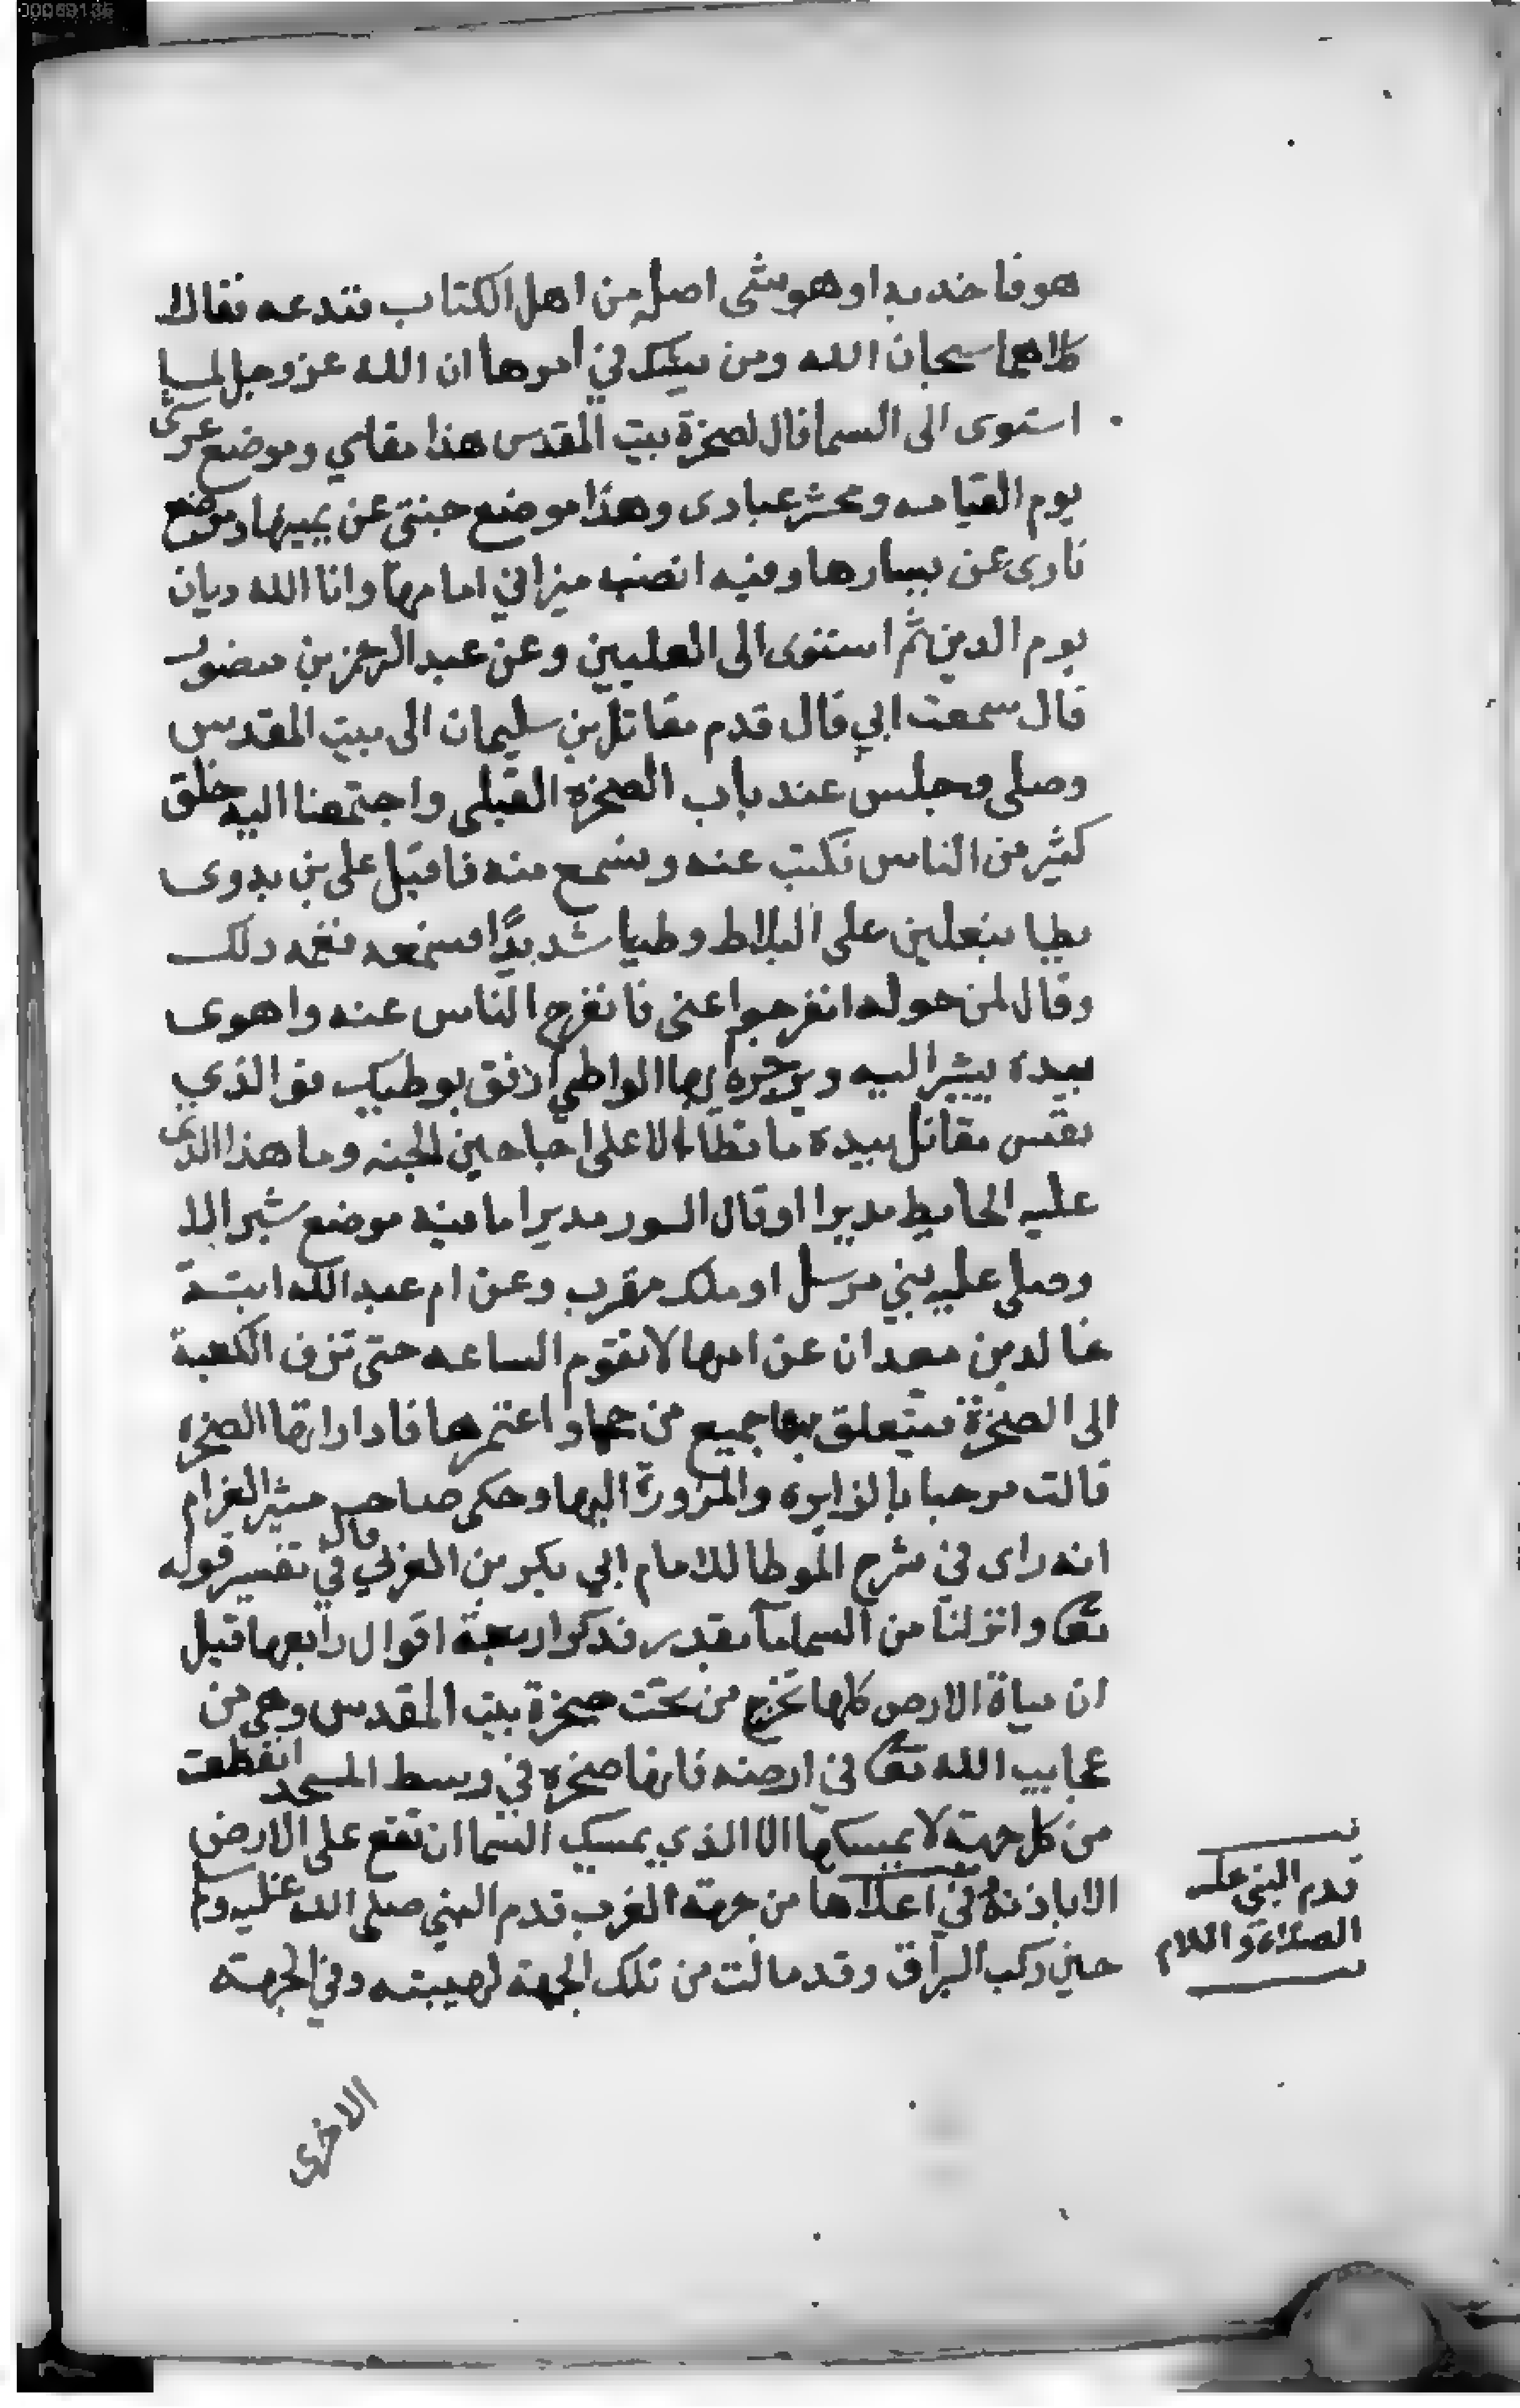 هو فاخذ به او هو شى اصله من اهل الكتاب فتدعه فقال
كلاهما سبحان الله ومن يشك في امرها ان الله عز وجل لما
استوى الى السما قال لصخرة بيت المقدس هذا مقامي وموضع عرشى
يوم القيامه ومحشر عبادى وهذا موضع جنتى عن يمينها وموضع
نارى عن يسارها وفيه انصب ميزاني امامها وانا الله ديان
يوم الدين ثم استوى الى العليين وعن عبد الرحمن بن منصور
قال سمعت ابي قال قدم مقاتل بن سليمان الى بيت المقدس
وصلى وجلس عند باب الصخرة القبلى واجتمعنا اليه خلق
كثير من الناس نكتب عنه ونسمع منه فاقبل على بن بدوى
يطا بنعلين على البلاط وطيا شديدًا فسمعه فغمه دلك
وقال لمن حوله انفرجوا عنى فانفرج الناس عنه واهوى
بيده يشير اليه ويزجره ايها الواطي ارفق بوطيك فوالذي
نفس مقاتل بيده ما تطا الا على اجاجين الجنه وما هذا الذى
عليه الحايط مديرا او قال السور مديرا ما فيه موضع شبر الا
وصلى عليه نبي مرسل او ملك مقرب وعن ام عبد الله ابنة
خالد بن معدان عن امها لا تقوم الساعه حتى تزف الكعبة
الى الصخرة فيتعلق بها جميع من حجها واعتمرها فادا راتها الصخرة
قالت مرحبا بالزايره والمزورة اليها وحكى صاحب مثير الغرام
انه راى في شرح الموطا للامام ابي بكر بن العربي قال في تفسير قوله
تعا وانزلنا من السما مآ بقدر فذكر اربعة اقوال رابعها قيل
ان مياة الارض كلها تخرج من تحت صخرة بيت المقدس وهي من
عجايب الله تعا في ارضه فانها صخره في وسط المسجد انقطعت
من كل جهة لا يمسكها الا الذي يمسك السما ان تقع على الارض
الا باذنه في اعلاها من جهة الغرب قدم النبي صلى الله عليه وسلم
حين ركب البراق وقد مالت من تلك الجهة لهيبته وفي الجهة
الاخرى
قدم النبي عليه
الصلاة والسلام